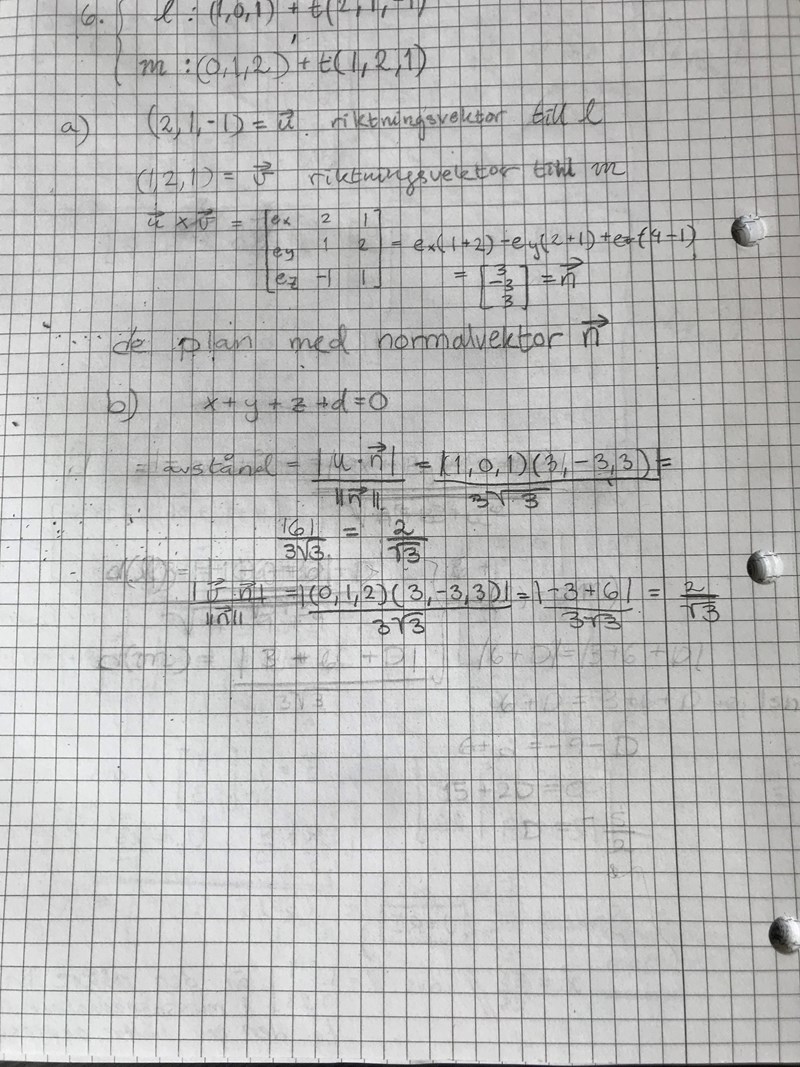 6. l : (1,0,1) + t(2,1,-1)
m : (0,1,2) + t(1,2,1)
a) (2,1,-1) = u⃗ riktningsvektor till l
(1,2,1) = v⃗ riktningsvektor till m
u⃗ × v⃗ = [ex 2 1
ey 1 2
ez -1 1] = ex(1+2) - ey(2+1) + ez(4-1)
= [3
-3
3] = n⃗
de plan med normalvektor n⃗
b) x+y+z+d=0
= avstånd = |u·n⃗| / ||n⃗|| = |(1,0,1)(3,-3,3)| / 3√3 =
|6| / 3√3 = 2/√3
|v⃗·n⃗| / ||n⃗|| = |(0,1,2)(3,-3,3)| / 3√3 = |-3+6| / 3√3 = 2/√3
d(m) = |3+6+D| / 3√3 |6+D|=|3+6+D|
6+D = -9-D
15+2D=0